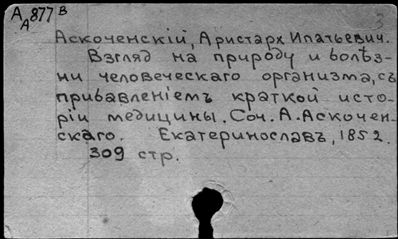 А 877 В
А
Аскоченскій, Аристарх Ипатьевич.
Взгляд на природу и болѣз-
ни человеческаго организма, съ
прибавленіемъ краткой исто-
ріи медицины. Соч. А. Аскочен-
скаго. Екатеринославъ, 1852.
309 стр.